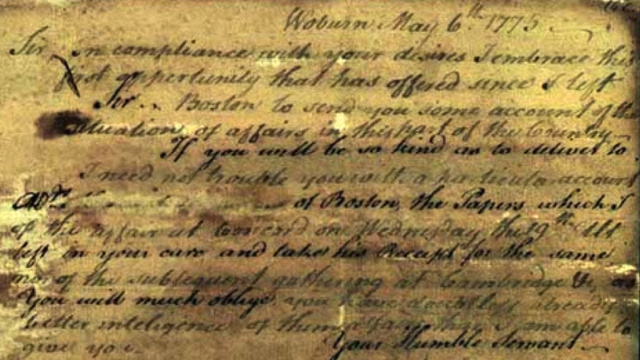 Woburn May 6th. 1775
Sir in compliance with your desires I embrace this
first opportunity that has offered since I left
Sir.. Boston to send you some account of the
situation, of affairs in this part of the Country
If you will be so kind as to deliver to
I need not trouble you with a particular account
of Boston, the Papers which I
of the affair at Concord on Wednesday the 19th Ult
left in your care and take his Receipt for the same
of the subsequent gathering at Cambridge &c as
You will much oblige, you have doubtless already
better inteligence of them a
able to
Your Humble Servant
give you